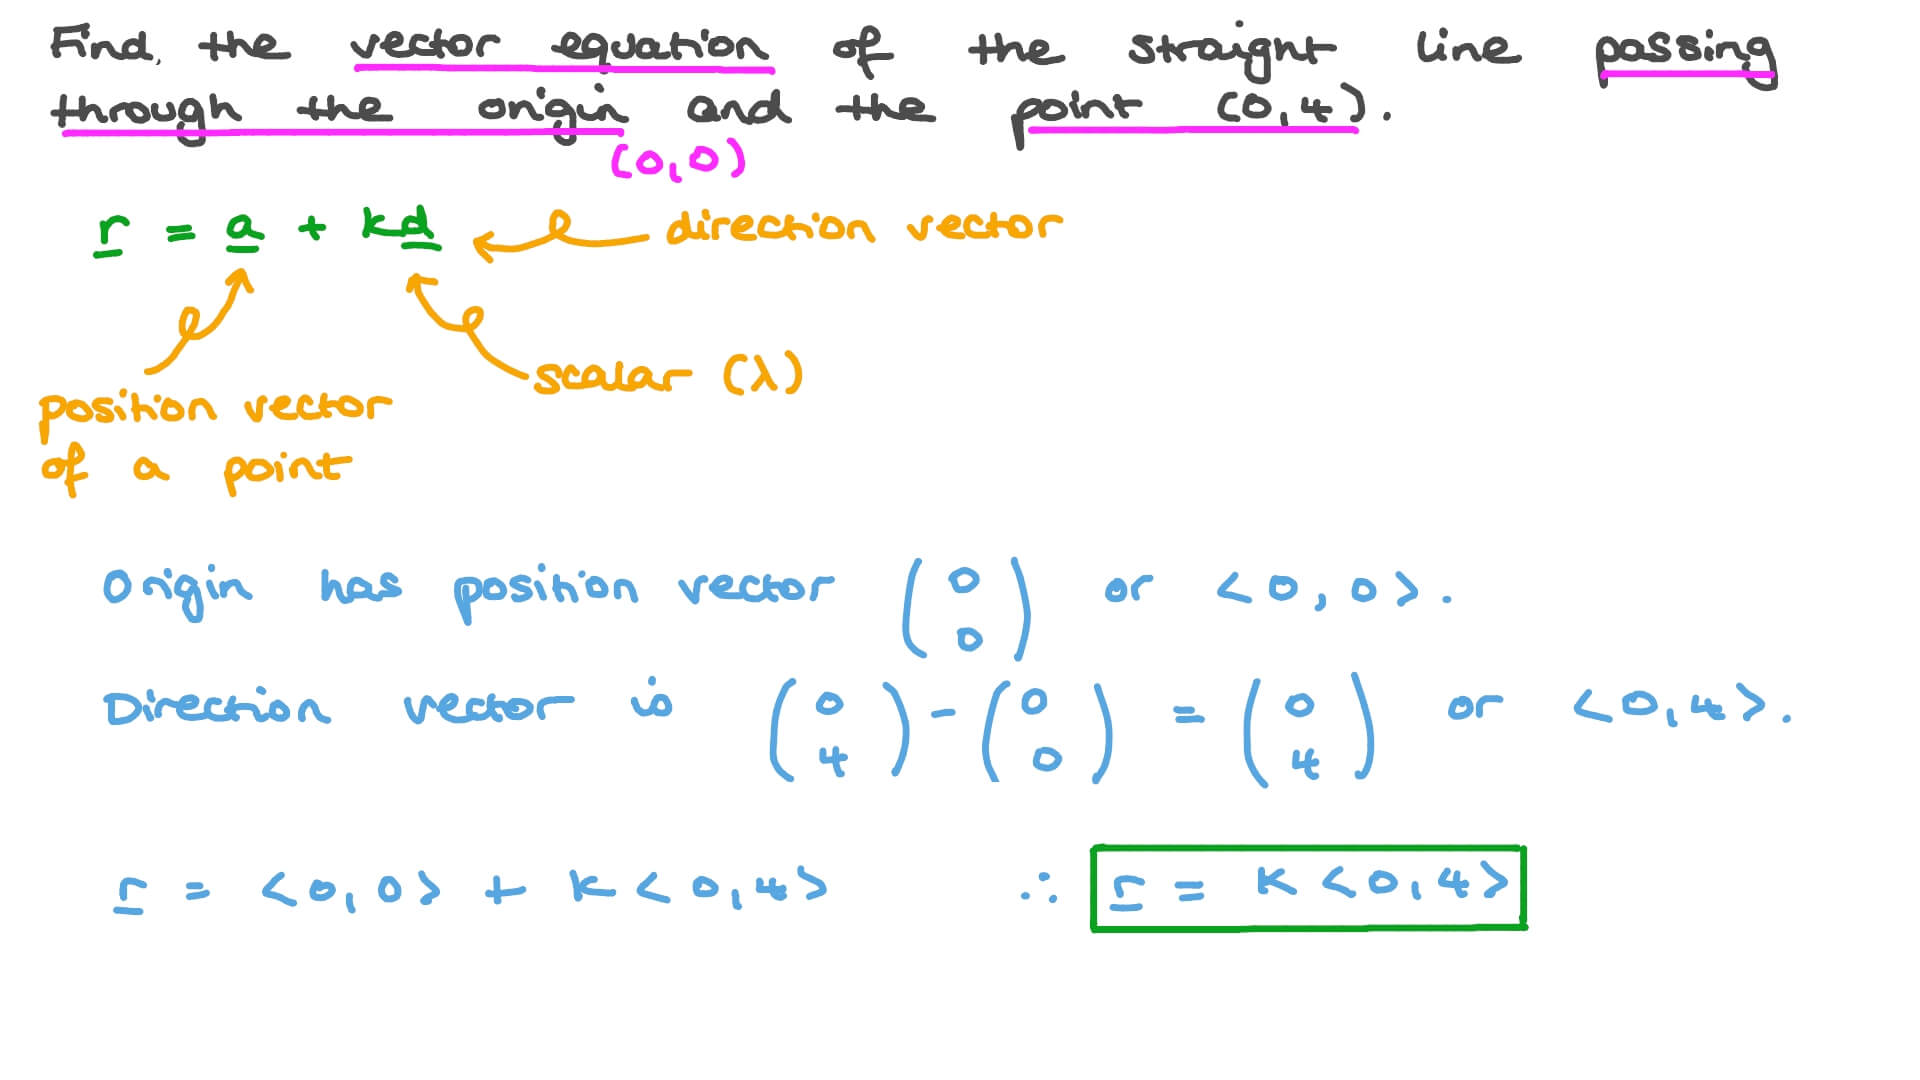 Find the vector equation of the straight line passing
through the origin and the point (0,4).
(0,0)
r = a + kd
direction vector
scalar (λ)
position vector
of a point
Origin has position vector (0 0) or <0,0>.
Direction vector is (0 4) - (0 0) = (0 4) or <0,4>.
r = <0,0> + k<0,4> ∴ r = k<0,4>